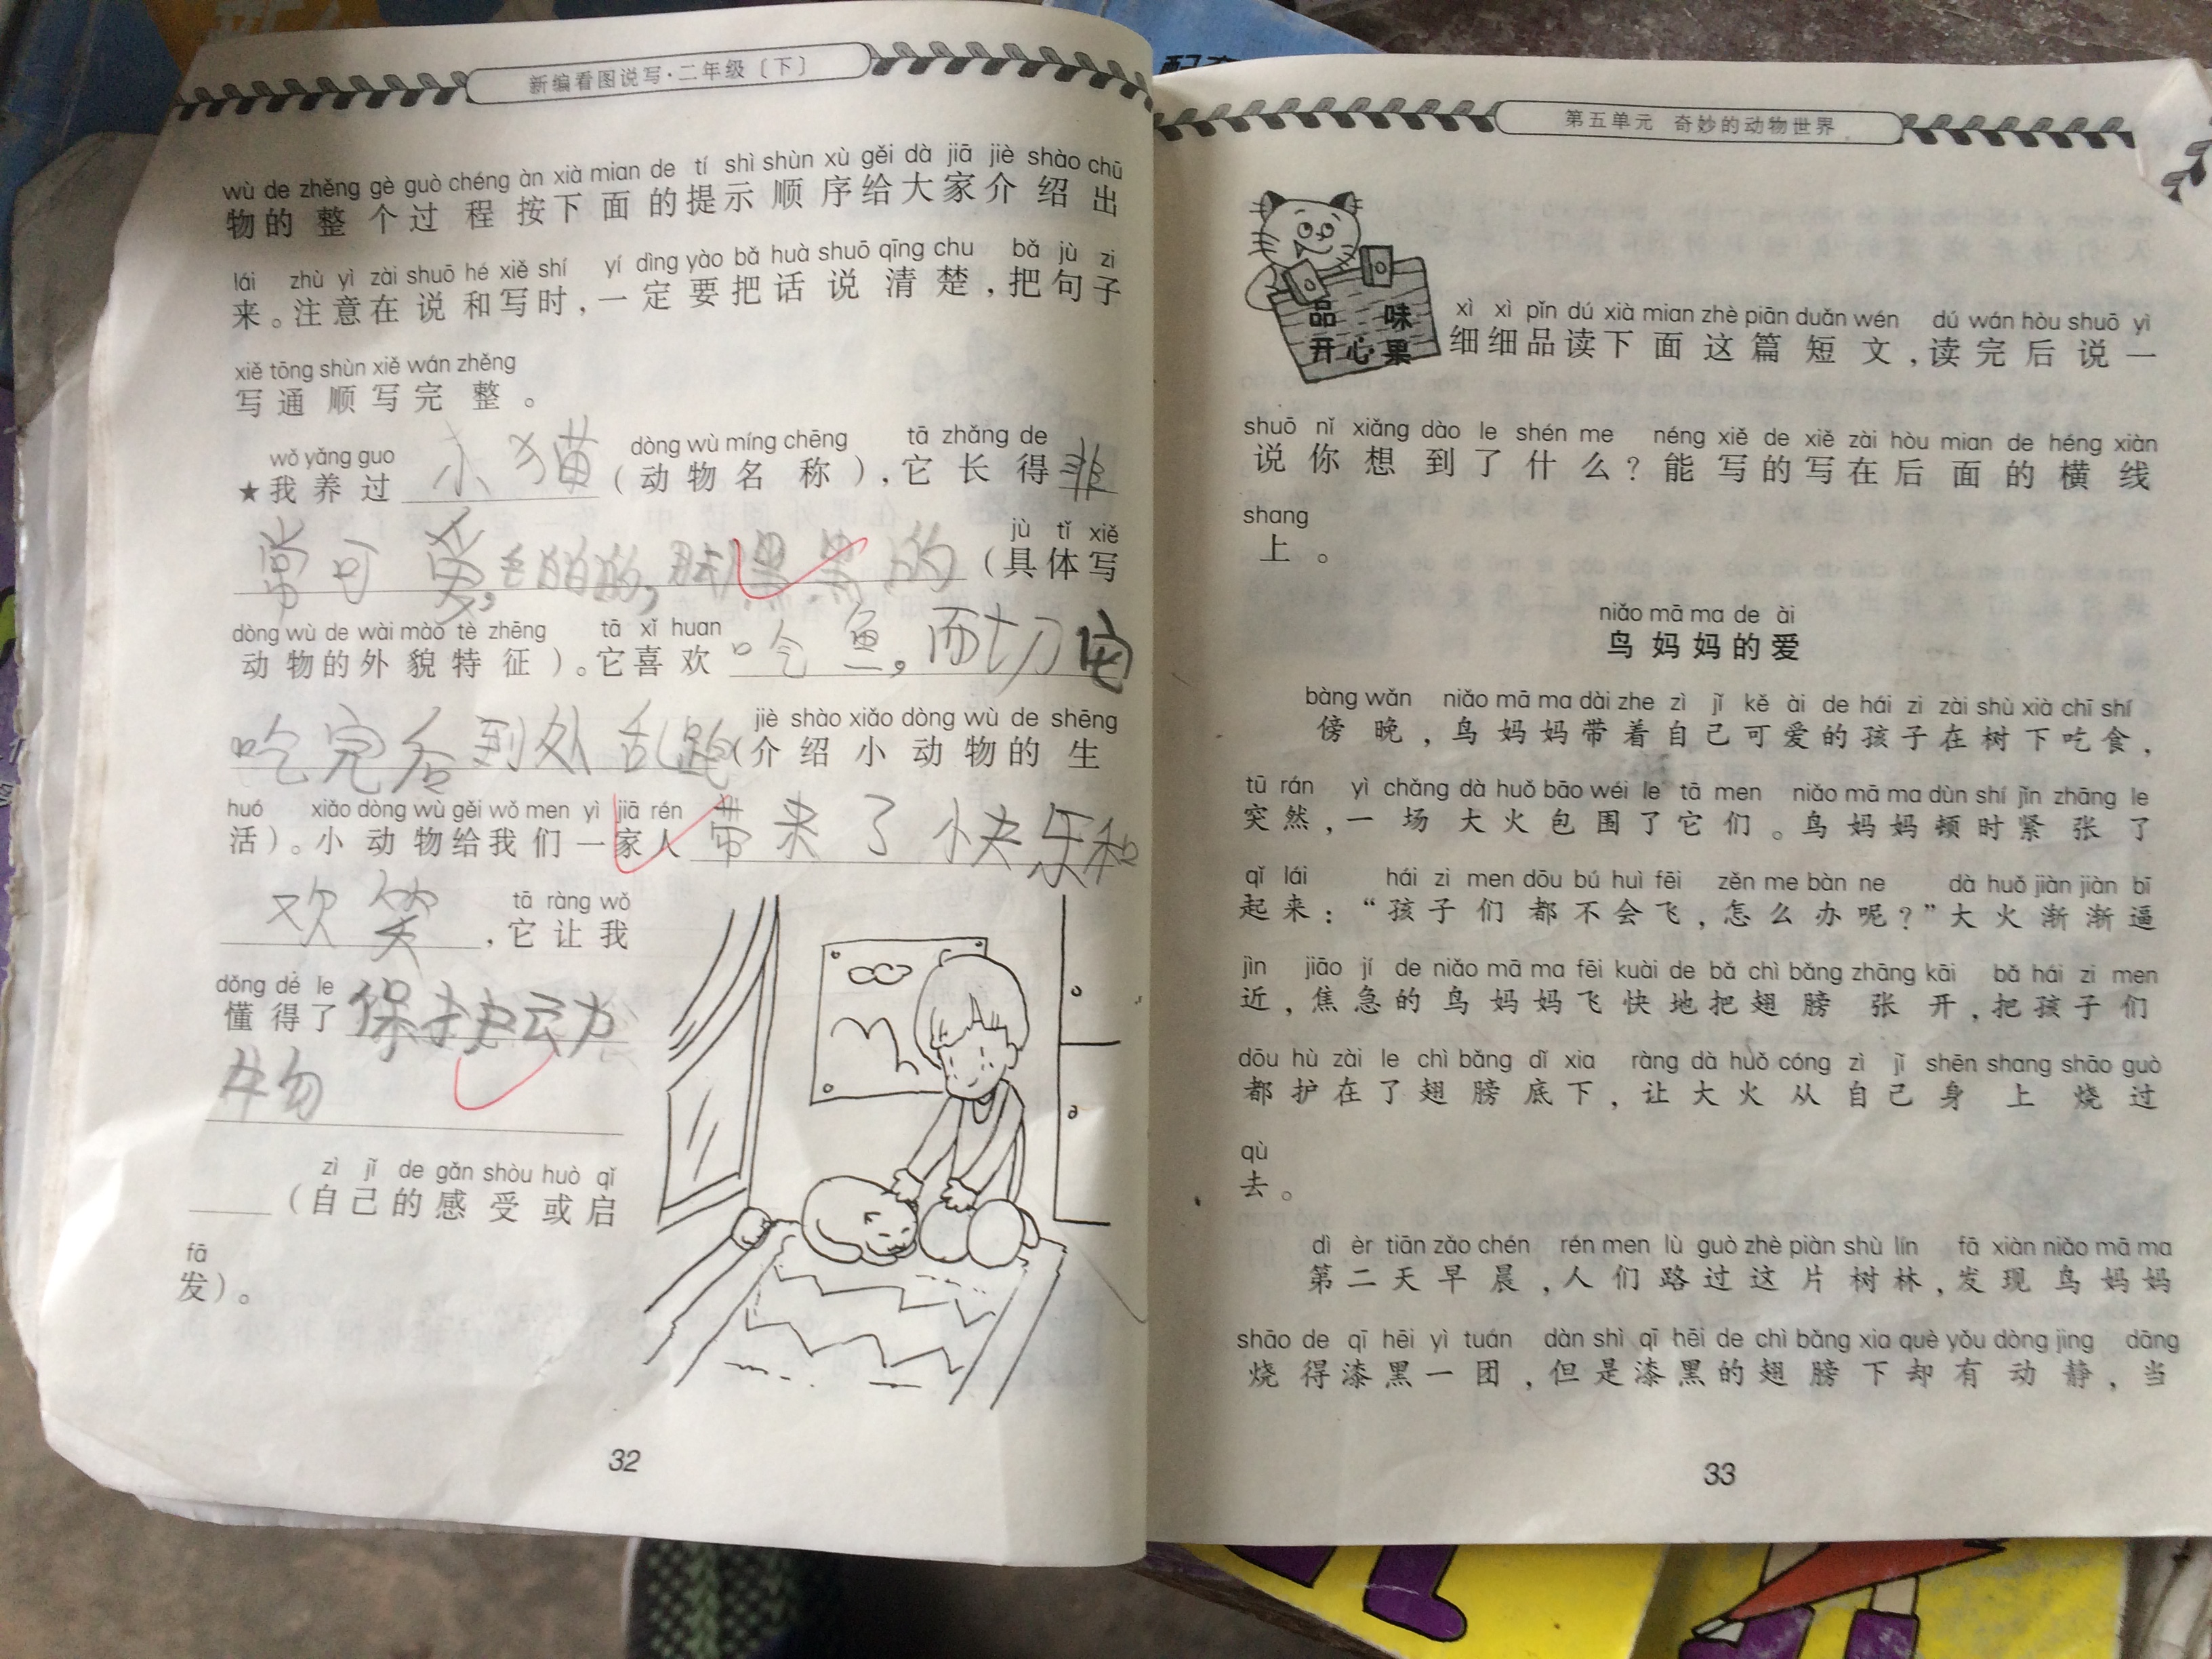 新编看图说写·二年级〔下〕
wù de zhěng gè guò chéng àn xià mian de tí shì shùn xù gěi dà jiā jiè shào chū
物的整个过程按下面的提示顺序给大家介绍出
lái zhù yì zài shuō hé xiě shí yí dìng yào bǎ huà shuō qīng chu bǎ jù zi
来。注意在说和写时,一定要把话说清楚,把句子
xiě tōng shùn xiě wán zhěng
写通顺写完整。
wǒ yǎng guo dòng wù míng chēng tā zhǎng de
★我养过小猫(动物名称),它长得非
jù tǐ xiě
常可爱,毛的,黑黑的(具体写
dòng wù de wài mào tè zhēng tā xǐ huan
动物的外貌特征)。它喜欢吃鱼,而切它
jiè shào xiǎo dòng wù de shēng
吃完后到处乱跑(介绍小动物的生
huó xiǎo dòng wù gěi wǒ men yì jiā rén
活)。小动物给我们一家人带来了快乐和
tā ràng wǒ
欢笑,它让我
dǒng dé le
懂得了保护动
物
zì jǐ de gǎn shòu huò qǐ
(自己的感受或启
fā
发)。
32
配套
第五单元 奇妙的动物世界
品味
开心果
xì xì pǐn dú xià mian zhè piān duǎn wén dú wán hòu shuō yì
细细品读下面这篇短文,读完后说一
shuō nǐ xiǎng dào le shén me néng xiě de xiě zài hòu mian de héng xiàn
说你想到了什么?能写的写在后面的横线
shang
上。
niǎo mā ma de ài
鸟妈妈的爱
bàng wǎn niǎo mā ma dài zhe zì jǐ kě ài de hái zi zài shù xià chī shí
傍晚,鸟妈妈带着自己可爱的孩子在树下吃食,
tū rán yì chǎng dà huǒ bāo wéi le tā men niǎo mā ma dùn shí jǐn zhāng le
突然,一场大火包围了它们。鸟妈妈顿时紧张了
qǐ lái hái zi men dōu bú huì fēi zěn me bàn ne dà huǒ jiàn jiàn bī
起来:“孩子们都不会飞,怎么办呢?”大火渐渐逼
jìn jiāo jí de niǎo mā ma fēi kuài de bǎ chì bǎng zhāng kāi bǎ hái zi men
近,焦急的鸟妈妈飞快地把翅膀张开,把孩子们
dōu hù zài le chì bǎng dǐ xia ràng dà huǒ cóng zì jǐ shēn shang shāo guò
都护在了翅膀底下,让大火从自己身上烧过
qù
去。
dì èr tiān zǎo chén rén men lù guò zhè piàn shù lín fā xiàn niǎo mā ma
第二天早晨,人们路过这片树林,发现鸟妈妈
shāo de qī hēi yì tuán dàn shì qī hēi de chì bǎng xia què yǒu dòng jing dāng
烧得漆黑一团,但是漆黑的翅膀下却有动静,当
33